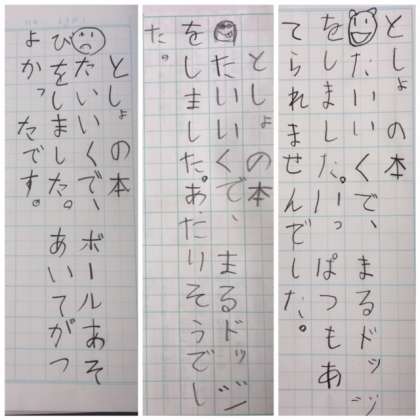 としょの本
たいいくで、まるドッジ
をしました。いっぱつもあ
てられませんでした。
としょの本
たいいくで、まるドッジ
をしました。あたりそうでし
た。
としょの本
たいいくで、ボールあそ
びをしました。あいてがつ
よかったです。